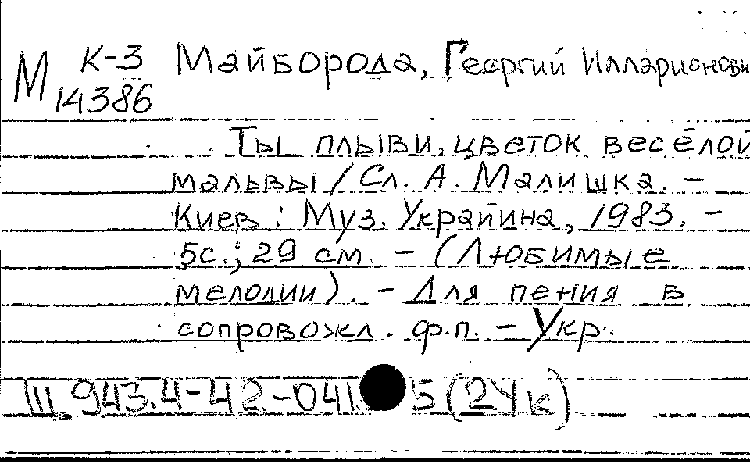 М К-3 Майборода, Георгий Илларионови
14386
Ты плыви, цветок весёлой
мальвы / Сл. А. Малишка. –
Киев : Муз. Украйина, 1983. –
5с.; 29 см. – (Любимые
мелодии). – Для пения в
сопровожд. ф.п. – Укр.
Ш 943.4-42-041. 5 (2Ук)